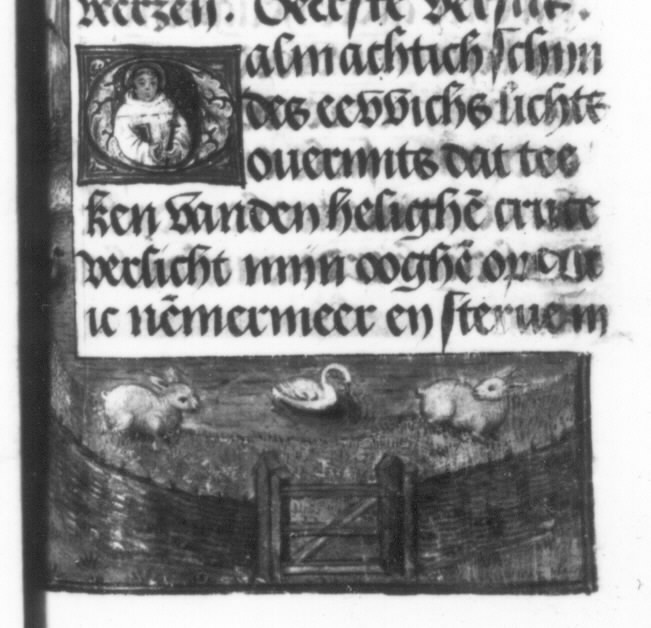 werzen. Deerste versus.
O almachtich schijn
des eewichs lichts
ouermits dat tee
ken vanden helighē cruce
verlicht mijn ooghē op dat
ic nēmermeer en sterue in